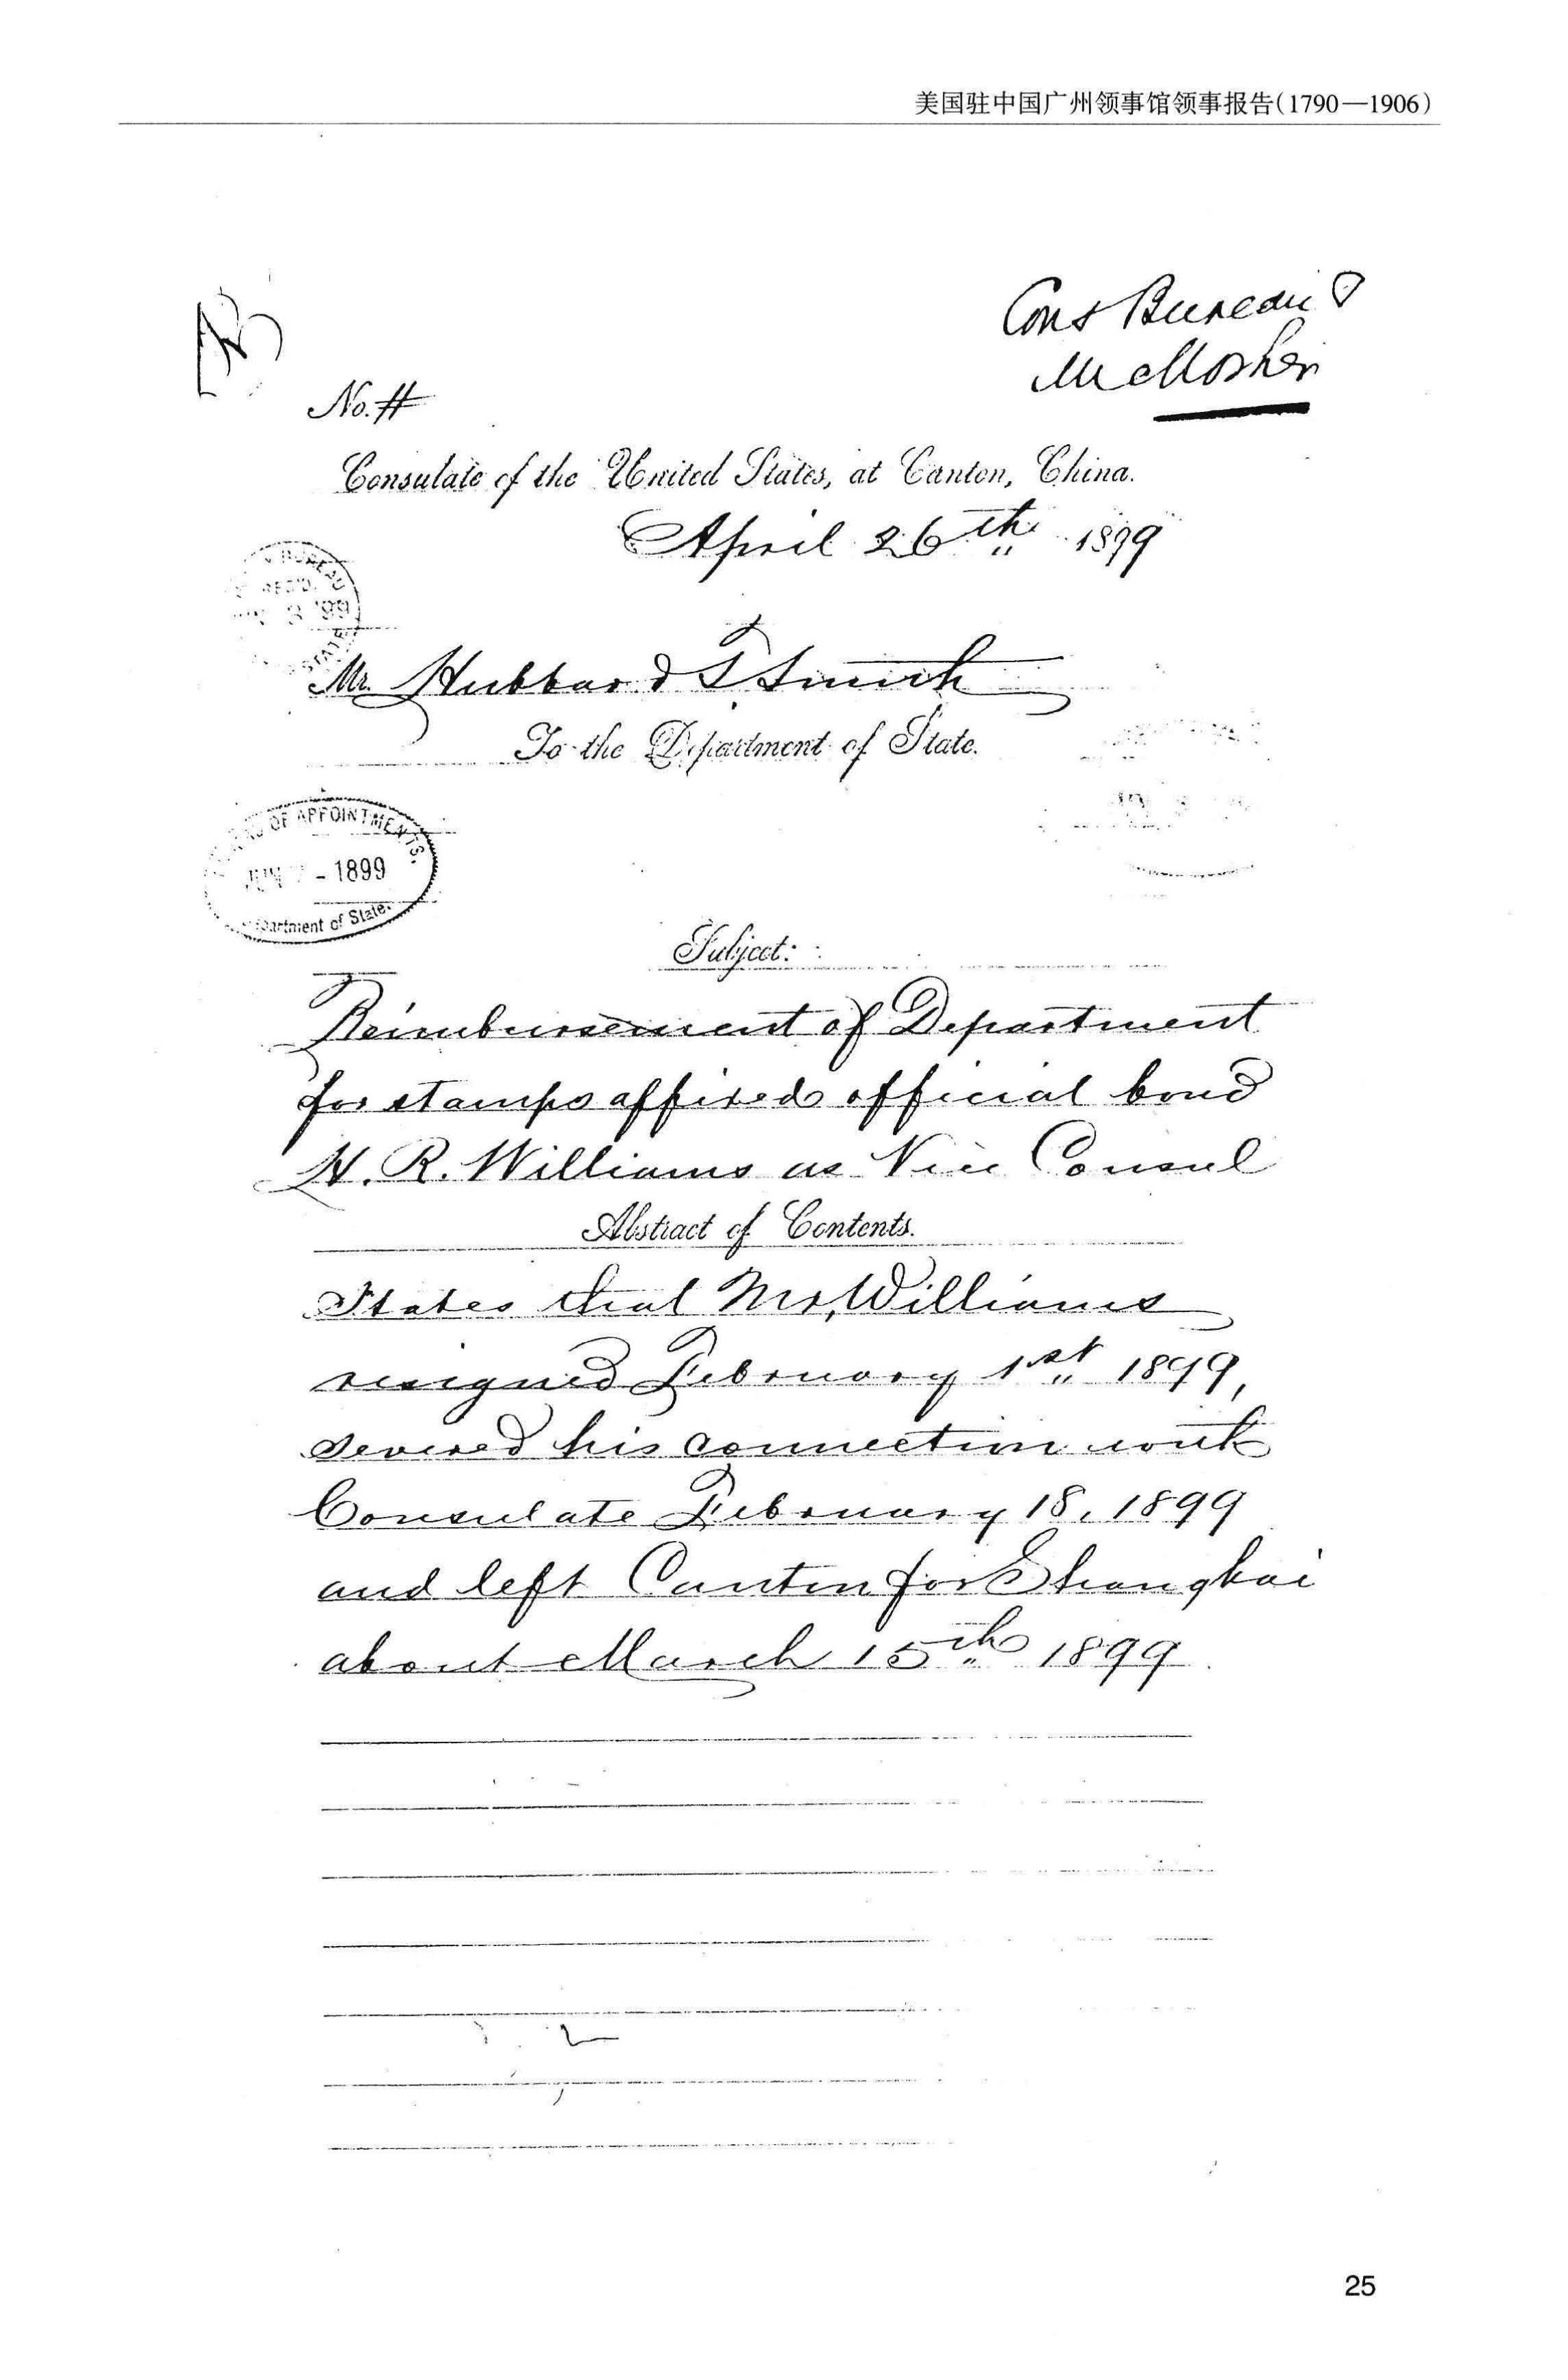 美国驻中国广州领事馆领事报告(1790—1906)
Cons Bureau
Mr Mosher
No. #
Consulate of the United States, at Canton, China.
April 26th 1899
BUREAU
REC'D
'99
STATE
Mr. Hubbard T. Smith
To the Department of State.
OF APPOINTMENTS.
- 1899
Department of State.
Subject:
Reimbursement of Department
for stamps affixed official bond
H. R. Williams as Vice Consul
Abstract of Contents.
States that Mr. Williams
resigned February 1st 1899,
severed his connection with
Consulate February 18, 1899
and left Canton for Shanghai
about March 15th 1899
25